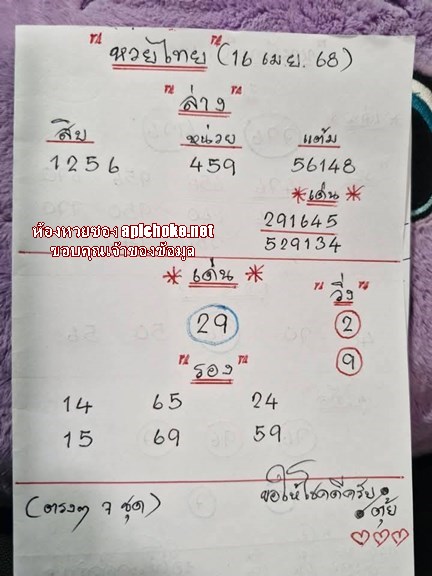 "หวยไทย" (16 เม.ย. 68)
"ล่าง"
สิบ หน่วย แต้ม
1256 459 56148
*เด่น*
291645
529134
ห้องหวยซอง apichoke.net
ขอบคุณเจ้าของข้อมูล
*เด่น*
"วิ่ง"
29 2
9
"รอง"
14 65 24
15 69 59
(ตรงๆ 7 ชุด) ขอให้โชคดีครับ
ตุ้ย